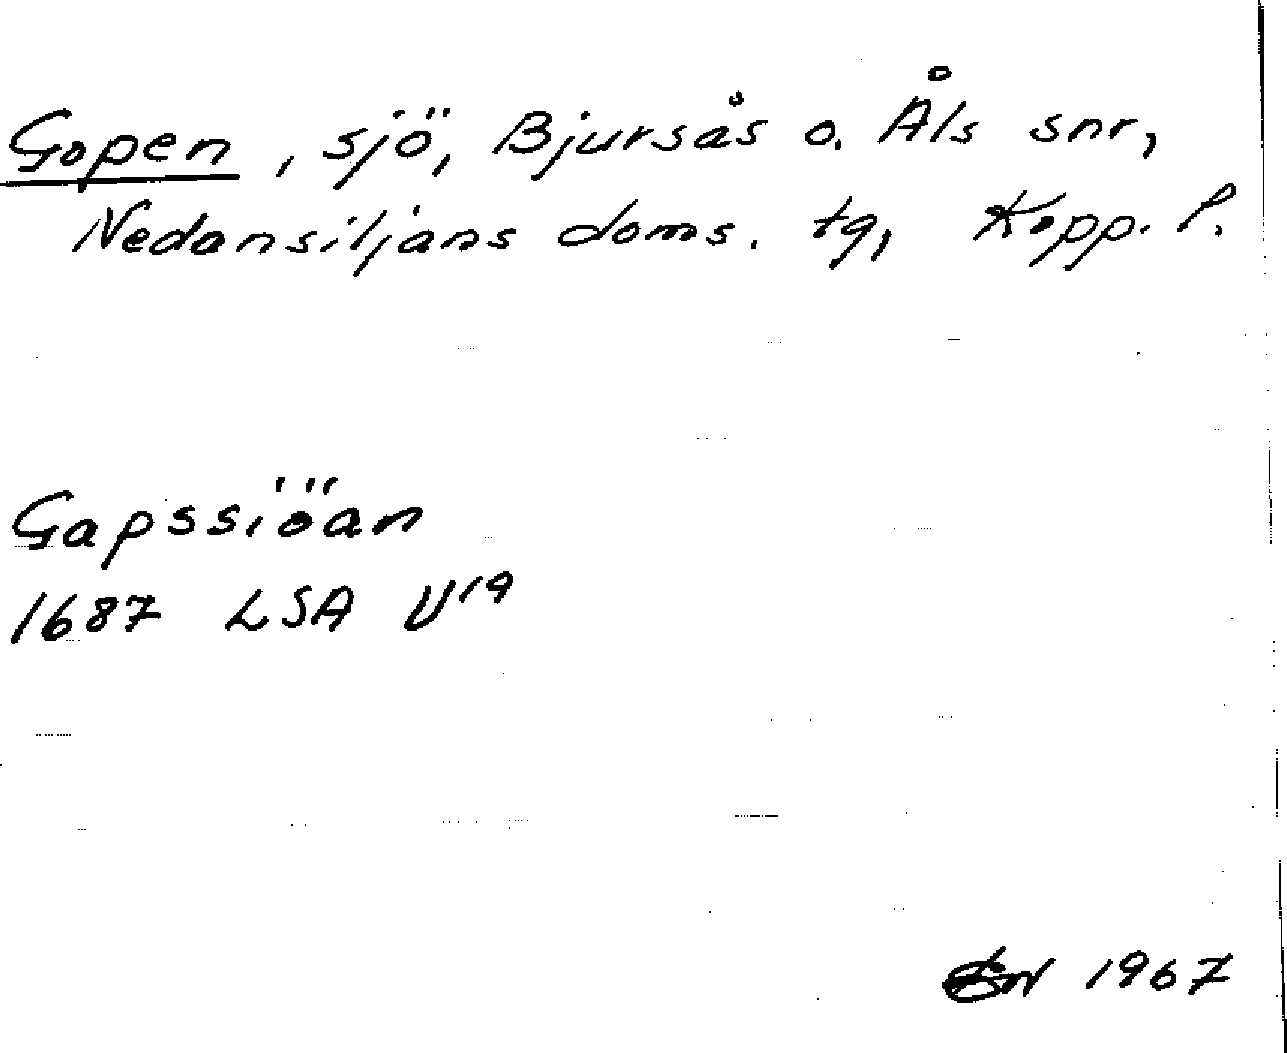 Gopen, sjö, Bjursås o. Åls snr,
Nedansiljans doms. tg, Kopp. l.
Gapssiöan
1687 LSA U19
1967